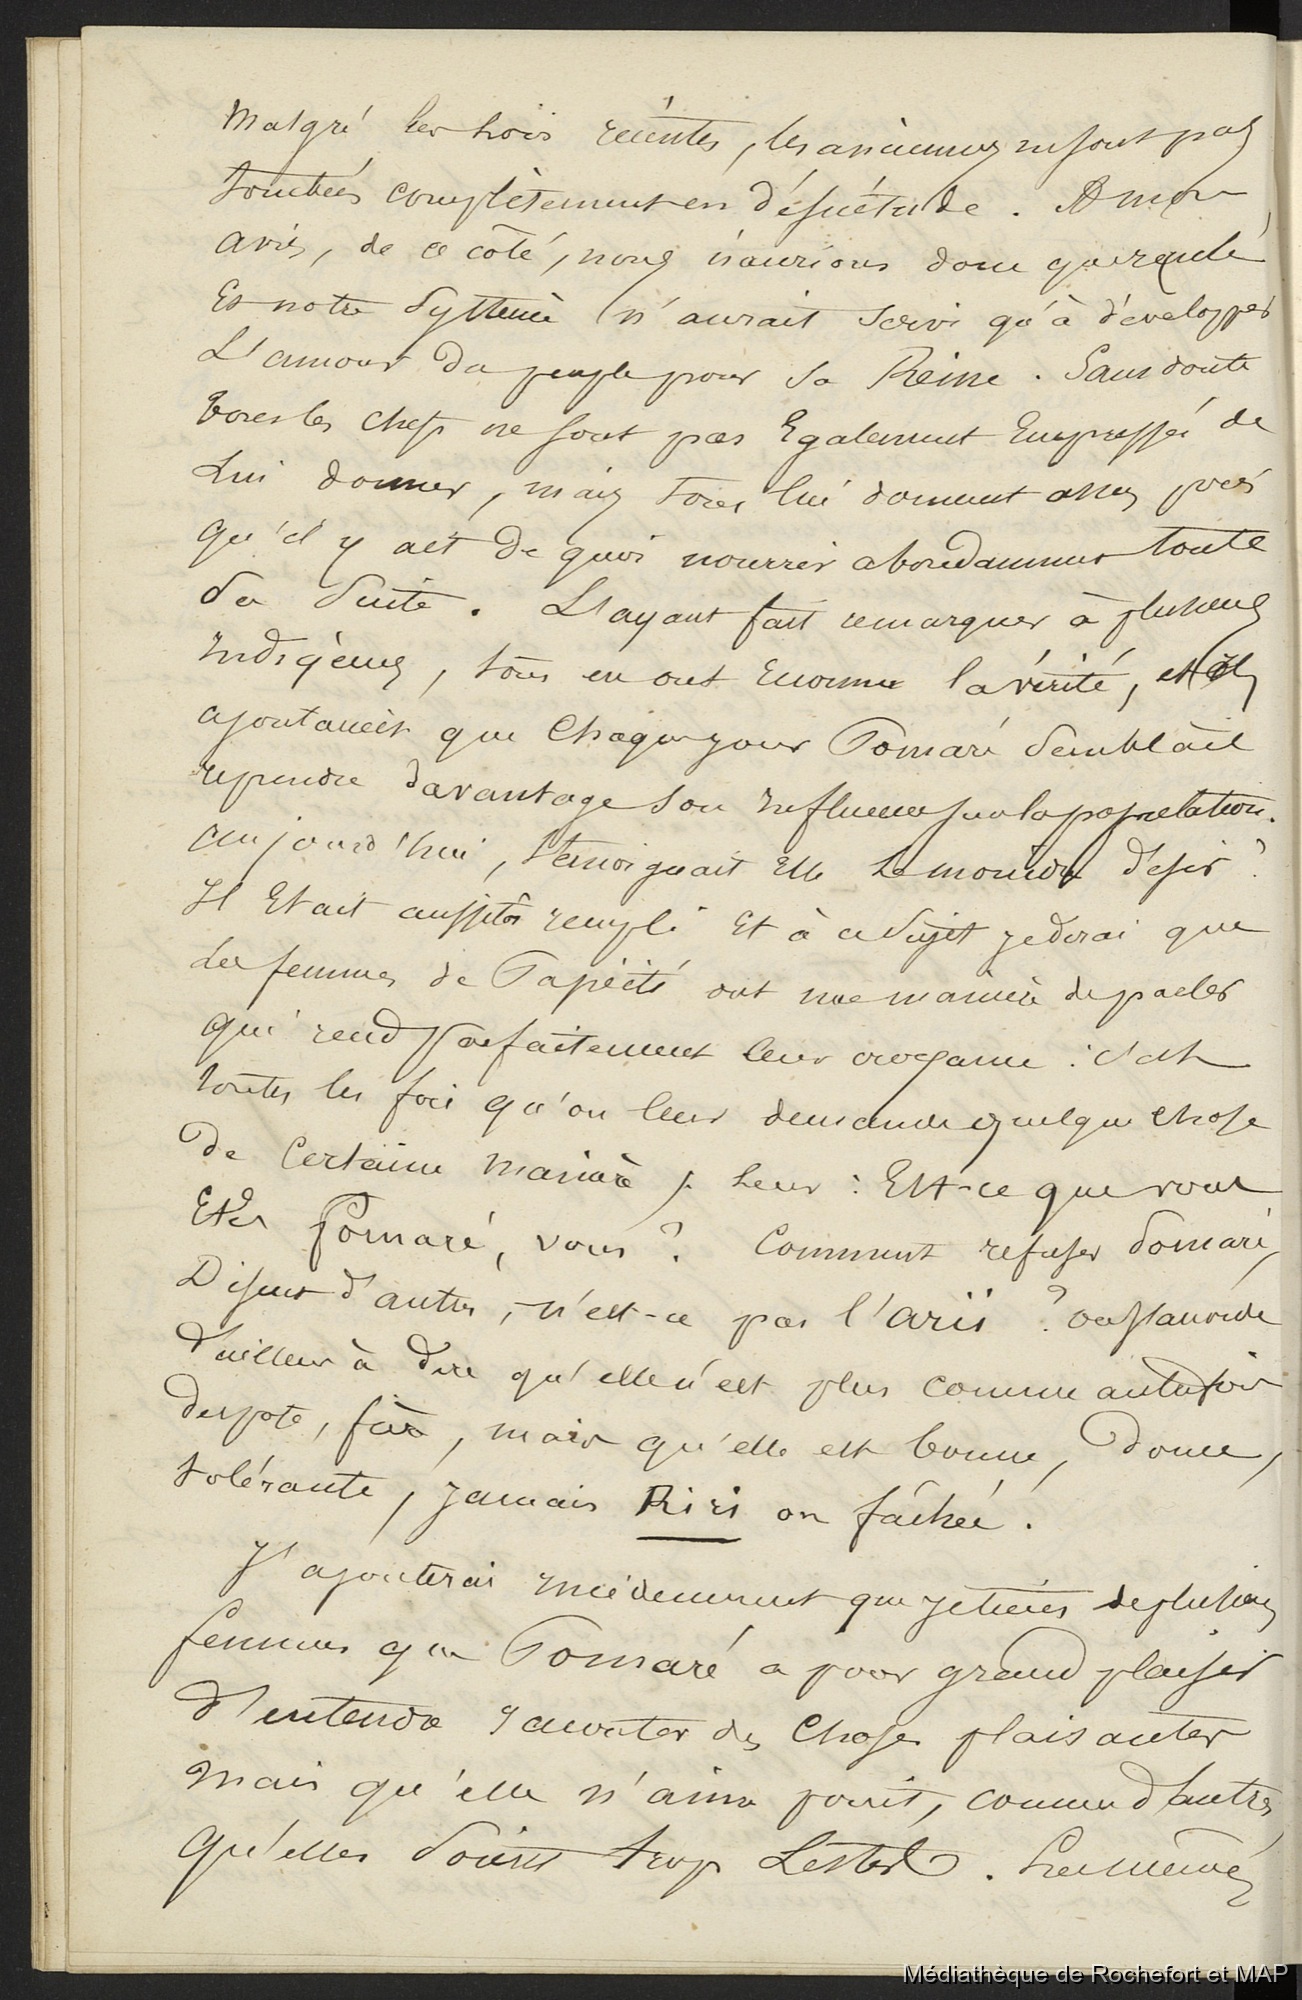 Malgré les lois récentes, les anciennes ne sont pas
tombées complètement en désuétude. A mon
avis, de ce côté, nous n'aurions donc que reculé
Et notre système n'aurait servi qu'à développer
L'amour du peuple pour sa Reine. Sans doute
tous les chefs ne sont pas Egalement Empressés de
Lui donner, mais tous lui donnent assez pour
qu'il y ait de quoi nourrir abondamment toute
sa suite. L'ayant fait remarquer à plusieurs
Indigènes, tous en ont reconnu la vérité, et ils
ajoutaient que Chaque jour Pomaré semblait
reprendre davantage son Influence sur la population.
aujourd'hui, témoignait Elle le moindre désir ?
Il Etait aussitôt rempli Et à ce sujet je dirai que
Les femmes de Papéïté ont une manière de parler
qui rend parfaitement leur croyance : C'est
toutes les fois qu'on leur demande quelque chose
de Certaine manière à leur : Est-ce que vous
Etes Pomaré, vous ? Comment refuser Pomaré,
Disent d'autres, n'est-ce pas l'arii ? on s'accorde
d'ailleurs à dire qu'elle n'est plus comme autrefois
despote, fière, mais qu'elle est bonne, douce,
tolérante, jamais Riri ou fâchée.
J'ajouterai incidemment que je tiens de plusieurs
femmes que Pomaré a pour grand plaisir
d'entendre raconter des choses plaisantes
mais qu'elle n'aime point, comme d'autres,
qu'elles soient trop Lestes. Les mêmes
Médiathèque de Rochefort et MAP